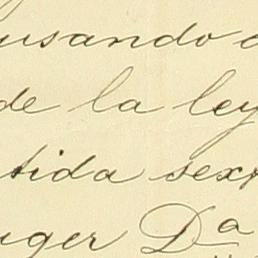 usando
de la ley
tida sex
uger Dª